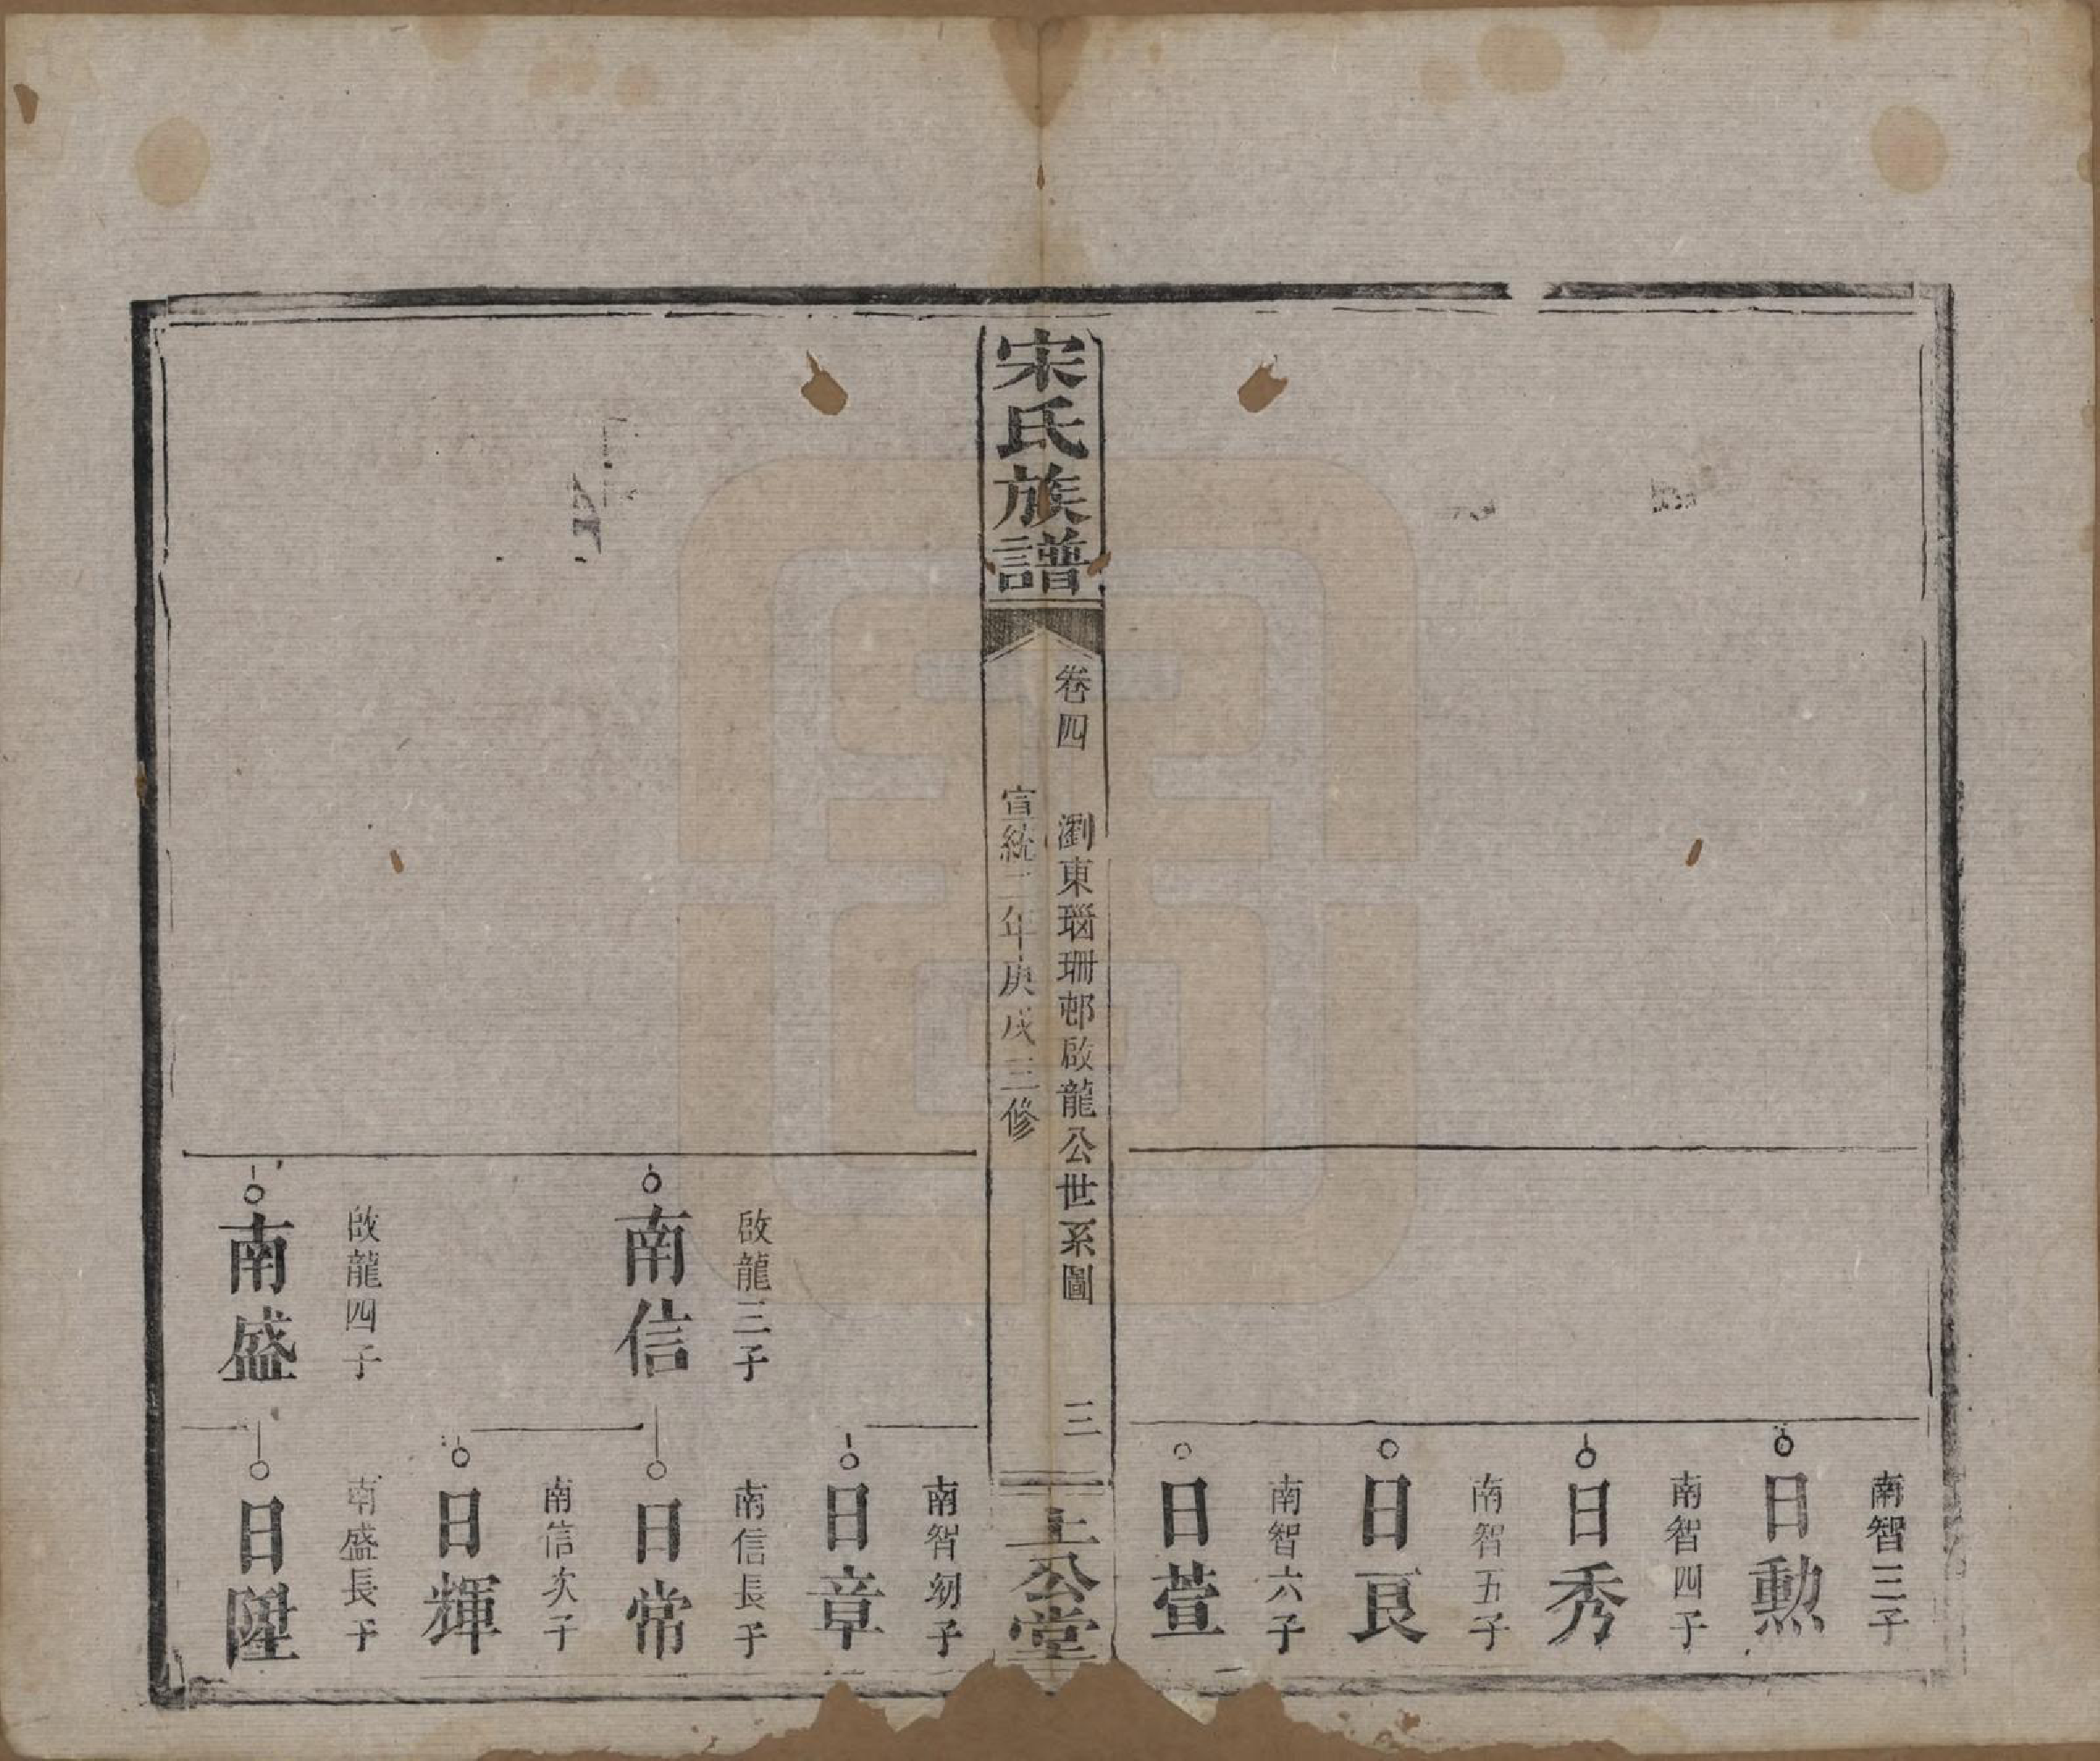 南智三子
日勲
南智四子
日秀
南智五子
日良
南智六子
日萱
宋氏族譜
卷四
瀏東瑙珊邨啟龍公世系圖
三
宣統二年庚戌三修
上公堂
南智幼子
日章
啟龍三子
南信
南信長子
日常
南信次子
日輝
啟龍四子
南盛
南盛長子
日陞